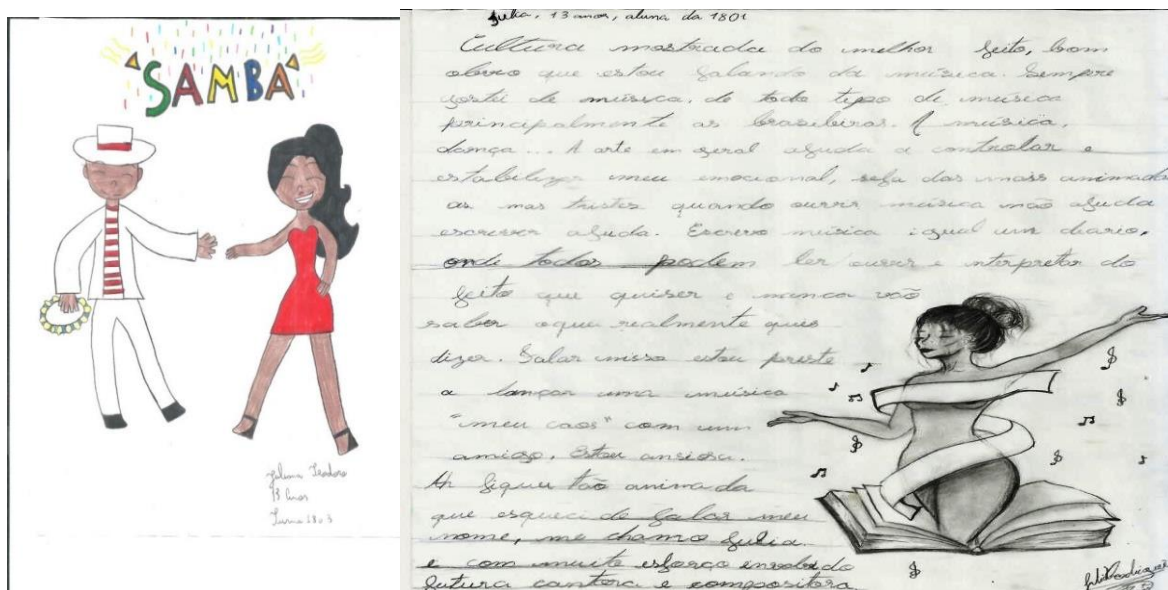 SAMBA
Juliana Teodoro
13 Anos
Turma 1803
Julia, 13 anos, aluna da 1801
Cultura mostrada do melhor jeito, bom
obvio que estou falando da música. Sempre
gostei de música, de todo tipo de música
principalmente as brasileiras. A música,
dança... A arte em geral ajuda a controlar e
estabilizar meu emocional, seja das mais animadas
as mas tristes quando ouvir música não ajuda
escrever ajuda. Escrevo música igual um diario,
onde todos podem ler ouvir e interpretar do
jeito que quiser e nunca vão
saber oque realmente quis
dizer. Falar nisso estou preste
a lançar uma música
"meu caos" com um
amigo. Estou ansiosa.
Ah fiquei tão animada
que esqueci de falar meu
nome, me chamo Julia.
e com muito esforço envolvido
futura cantora e compositora